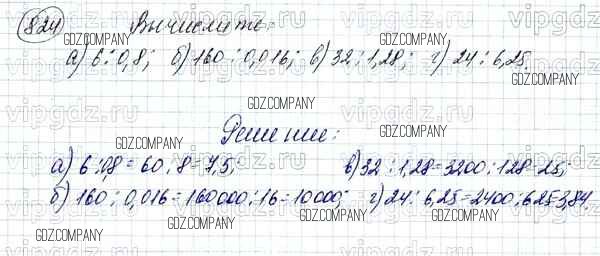 824 Вычислите:
а) 6 : 0,8; б) 160 : 0,016; в) 32 : 1,28; г) 24 : 6,25.
Решение:
а) 6 : 0,8 = 60 : 8 = 7,5; в) 32 : 1,28 = 3200 : 128 = 25;
б) 160 : 0,016 = 160000 : 16 = 10000; г) 24 : 6,25 = 2400 : 625 = 3,84.
vipgdz.ru
GDZ.COMPANY